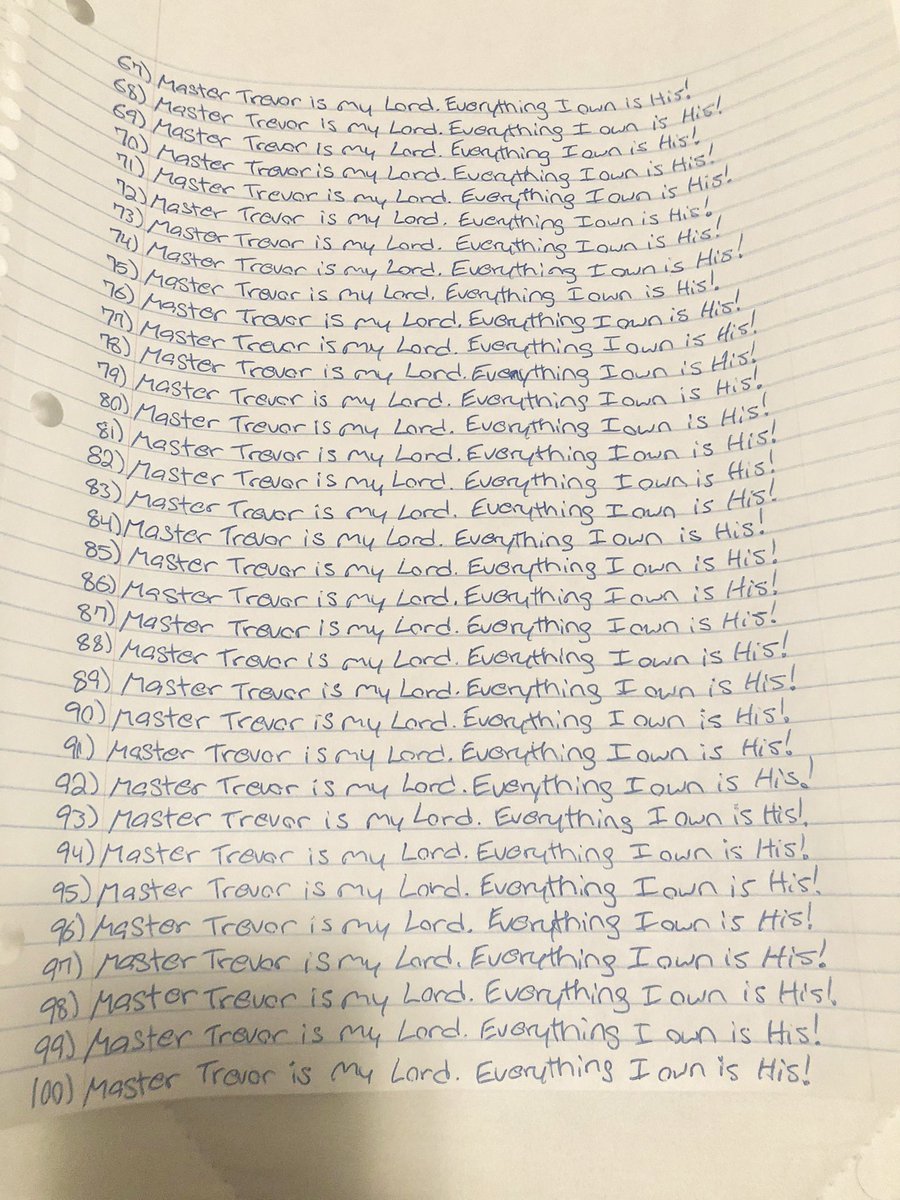 67) Master Trevor is my Lord. Everything I own is His!
68) Master Trevor is my Lord. Everything I own is His!
69) Master Trevor is my Lord. Everything I own is His!
70) Master Trevor is my Lord. Everything I own is His!
71) Master Trevor is my Lord. Everything I own is His!
72) Master Trevor is my Lord. Everything I own is His!
73) Master Trevor is my Lord. Everything I own is His!
74) Master Trevor is my Lord. Everything I own is His!
75) Master Trevor is my Lord. Everything I own is His!
76) Master Trevor is my Lord. Everything I own is His!
77) Master Trevor is my Lord. Everything I own is His!
78) Master Trevor is my Lord. Everything I own is His!
79) Master Trevor is my Lord. Everything I own is His!
80) Master Trevor is my Lord. Everything I own is His!
81) Master Trevor is my Lord. Everything I own is His!
82) Master Trevor is my Lord. Everything I own is His!
83) Master Trevor is my Lord. Everything I own is His!
84) Master Trevor is my Lord. Everything I own is His!
85) Master Trevor is my Lord. Everything I own is His!
86) Master Trevor is my Lord. Everything I own is His!
87) Master Trevor is my Lord. Everything I own is His!
88) Master Trevor is my Lord. Everything I own is His!
89) Master Trevor is my Lord. Everything I own is His!
90) Master Trevor is my Lord. Everything I own is His!
91) Master Trevor is my Lord. Everything I own is His!
92) Master Trevor is my Lord. Everything I own is His!
93) Master Trevor is my Lord. Everything I own is His!
94) Master Trevor is my Lord. Everything I own is His!
95) Master Trevor is my Lord. Everything I own is His!
96) Master Trevor is my Lord. Everything I own is His!
97) Master Trevor is my Lord. Everything I own is His!
98) Master Trevor is my Lord. Everything I own is His!
99) Master Trevor is my Lord. Everything I own is His!
100) Master Trevor is my Lord. Everything I own is His!